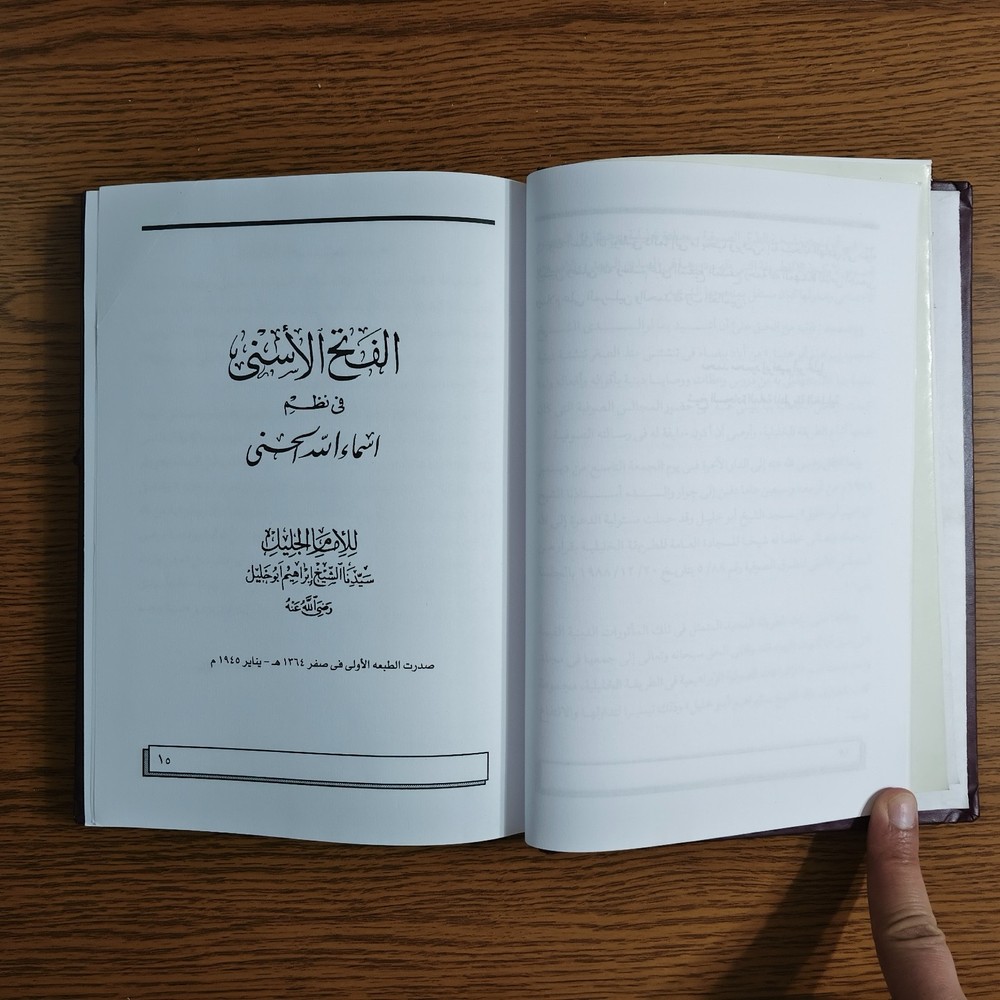 الفتح الأسنى
فى نظم
اسماء الله الحسنى
للإمام الجليل
سيدنا الشيخ إبراهيم ابو خليل
رضى الله عنه
صدرت الطبعه الأولى فى صفر ١٣٦٤ هـ - يناير ١٩٤٥ م
١٥